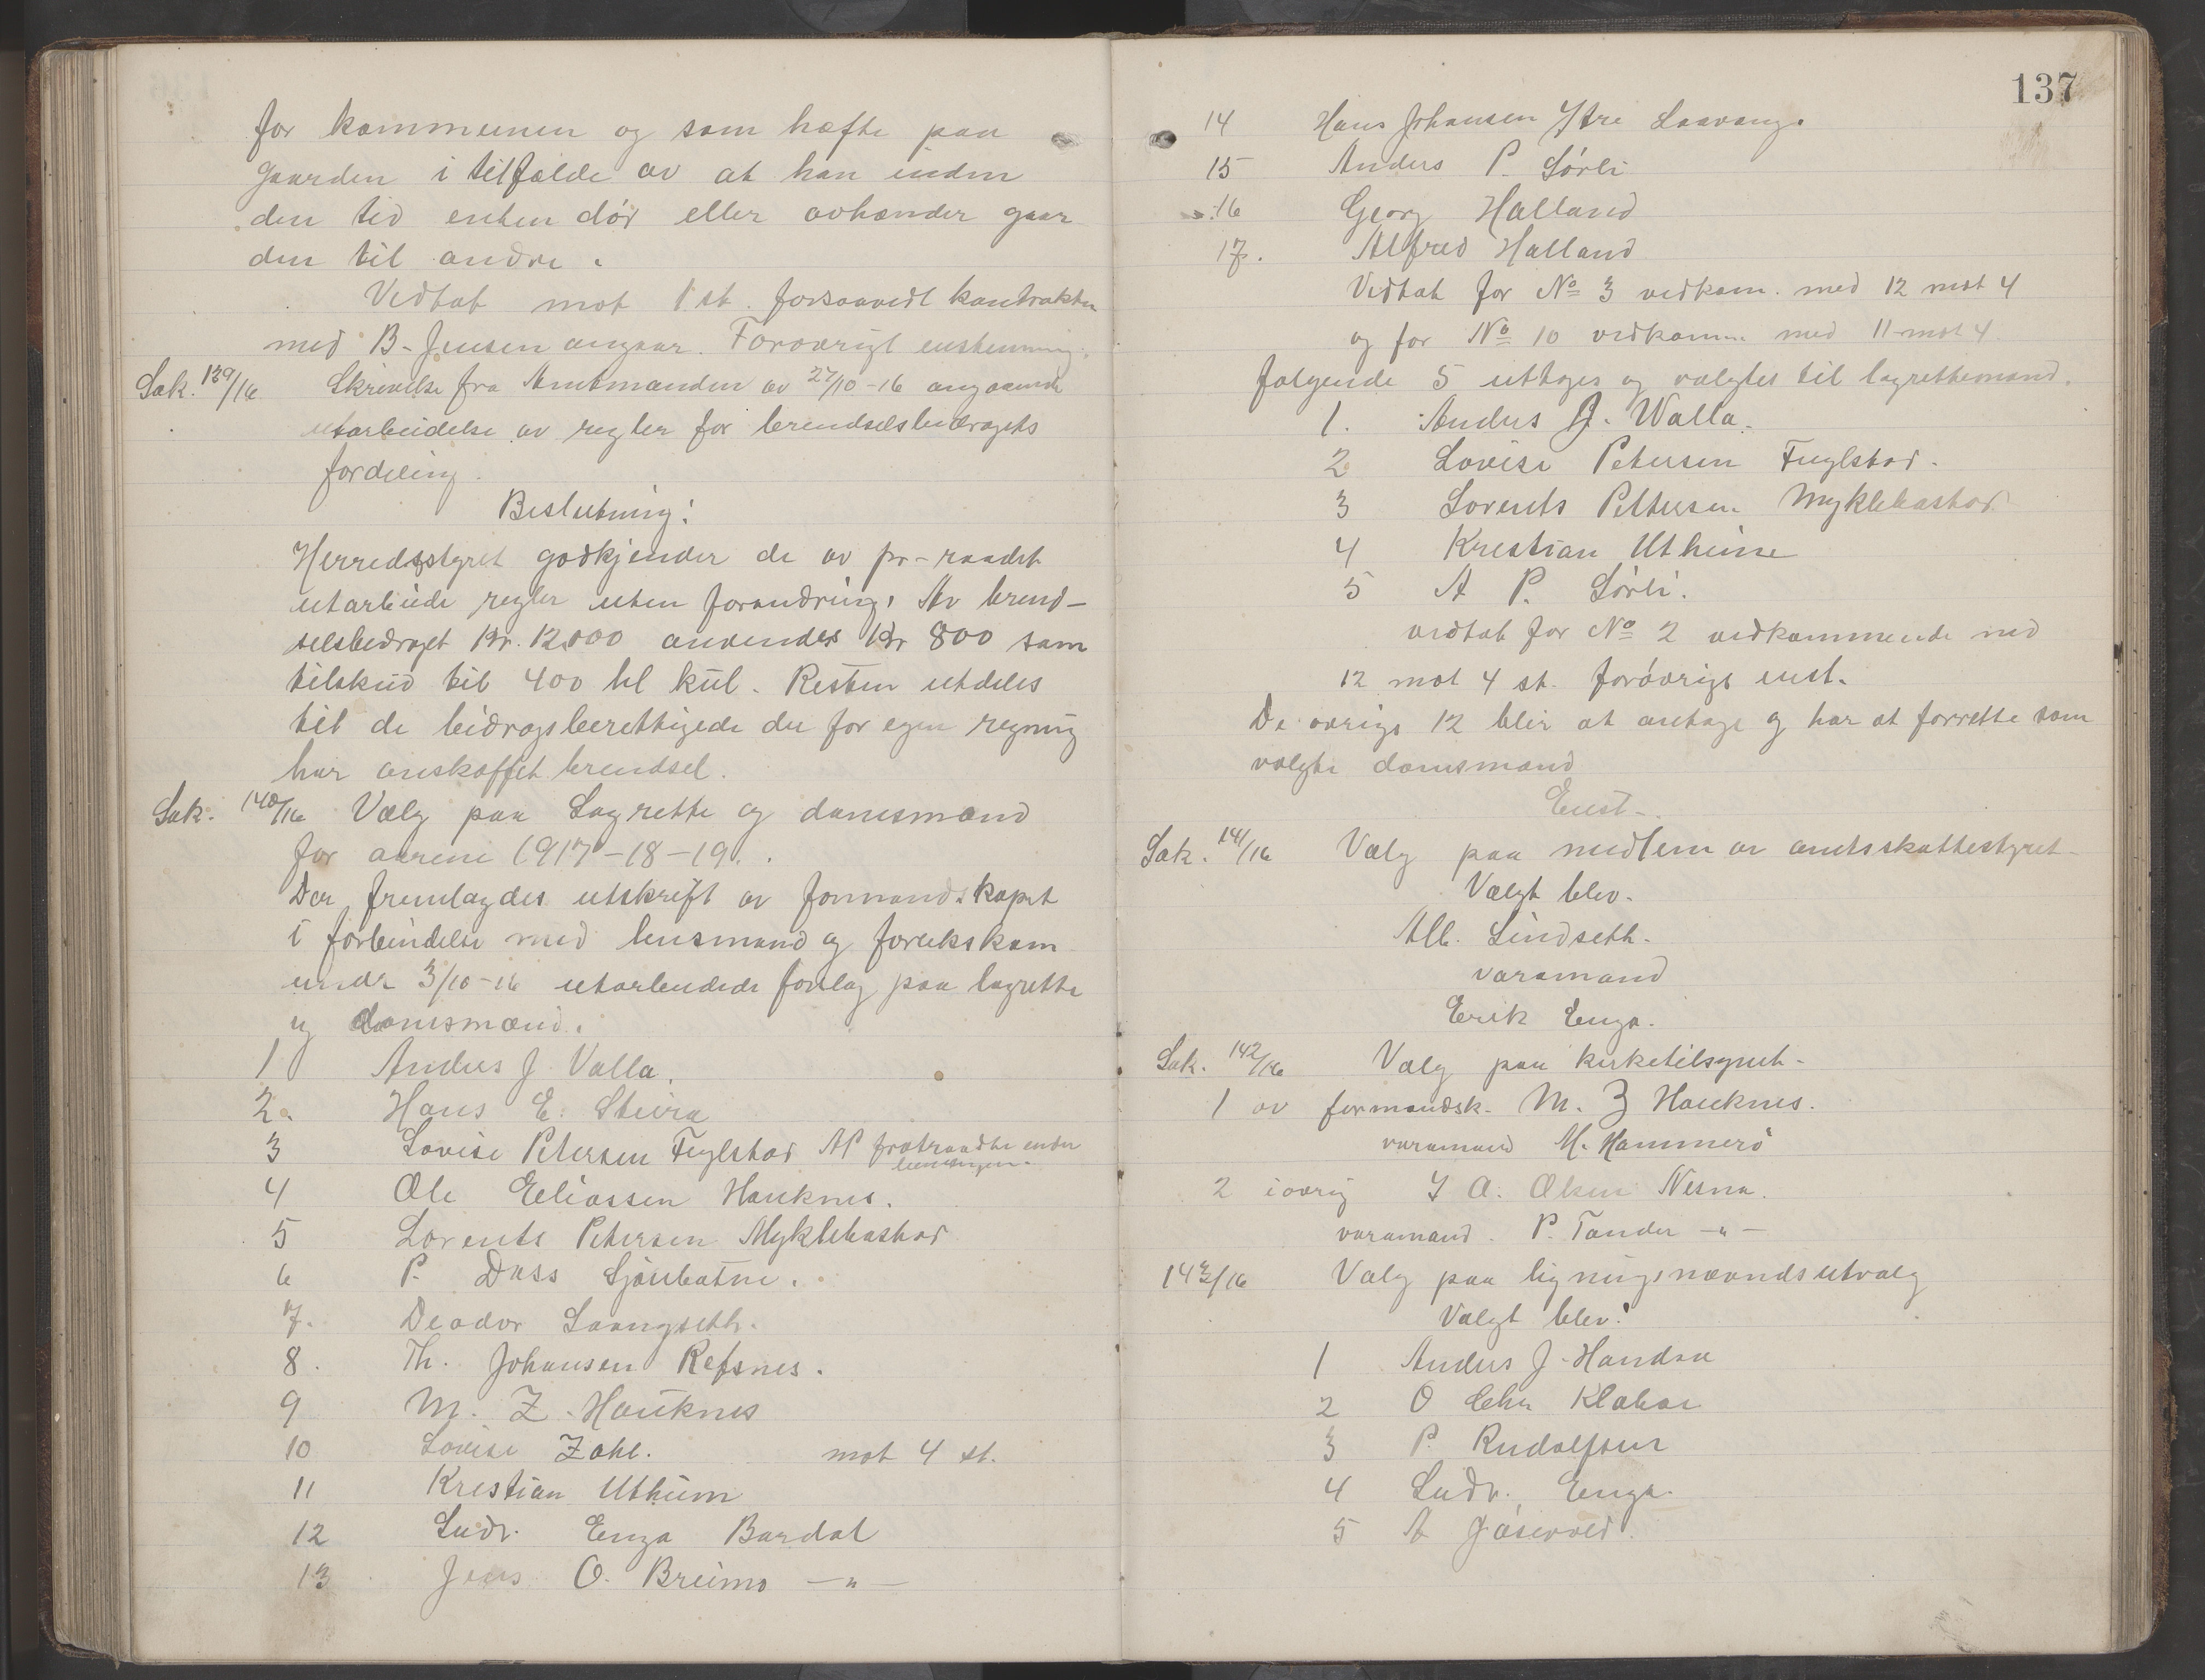 for kommunen og som hæfte paa
gaarden i tilfælde av at han inden
den tid enten dør eller avhænder gaar
den til andre.
Vedtat mot 1 st. forsaavidt kontrakten
med B. Jensen angaar. Forøvrigt enstemmig.
Sak. 139/16 Skrivelse fra Amtmanden av 27/10-16 angaaende
utarbeidelse av regler for brendselsbidragets
fordeling.
Beslutning:
Herredsstyret godkjender de av pr-raadet
utarbeide regler uten forandring. Av brend-
selsbedraget Kr. 12.000 anvendes Kr 800 som
tilskud til 400 hl kul. Resten utdeles
til de bidragsberettigede der for egen regning
har anskaffet brendsel.
Sak. 140/16 Valg paa Lagrette og domsmænd
for aarene 1917-18-19.
Der fremlagdes utskrift av formandskapet
i forbindelse med lensmand og
under 3/10-16 utarbeidede forslag paa lagrette
og domsmænd.
1 Anders J. Valla.
2. Hans E. Stivra
3 Lovise Petersen Fuglstad AP fratraadte under
4 Ole Eeliassen Hauknes.
5 Lorents Petersen Myklebustad
6 P. Dass Sjønbotne.
7. Deodor Laangseth.
8. Th. Johansen Refsnes.
9 M. Z. Hauknes
10 Lovise Zahl. mot 4 st.
11 Krestian Utheim
12 Ludv. Enga Bardal
13 Jens O. Breimo -"-
137
14 Hans Johansen Ytre Laavong.
15 Anders P. Sørli
16 Georg Halland
17. Alfred Halland
Vedtat for No 3 vedkom. med 12 mot 4
og for No 10 vedkomm. med 11 mot 4
følgende 5 uttages og valgtes til lagrettemænd.
1. Anders J. Walla.
2 Lovise Petersen Fuglstad.
3 Lorents Pettersen Myklebustad
4 Krestian Utheim
5 A P. Sørli.
vedtat for No 2 vedkommende med
12 mot 4 st. forøvrigt enst.
De øvrige 12 blir at antage og har at forrette som
valgte domsmænd
Enst.
Sak. 141/16 Valg paa medlem av amtsskattestyret
Valgt blev.
Alb. Lindseth.
varamand
Erik Enga.
Sak. 142/16 Valg paa kirketilsynet.
1 av formandsk. M. Z Hauknes.
varamand M. Hammerø
2 iøvrig I A. Olsen Nesna.
varamand. P. Tander -"-
143/16 Valg paa ligningsnævndsutvalg
Valgt blev:
1 Anders J. Handsa
2 O Chr
3 P. Rudolfsen
4 Ludv. Enga.
5 A